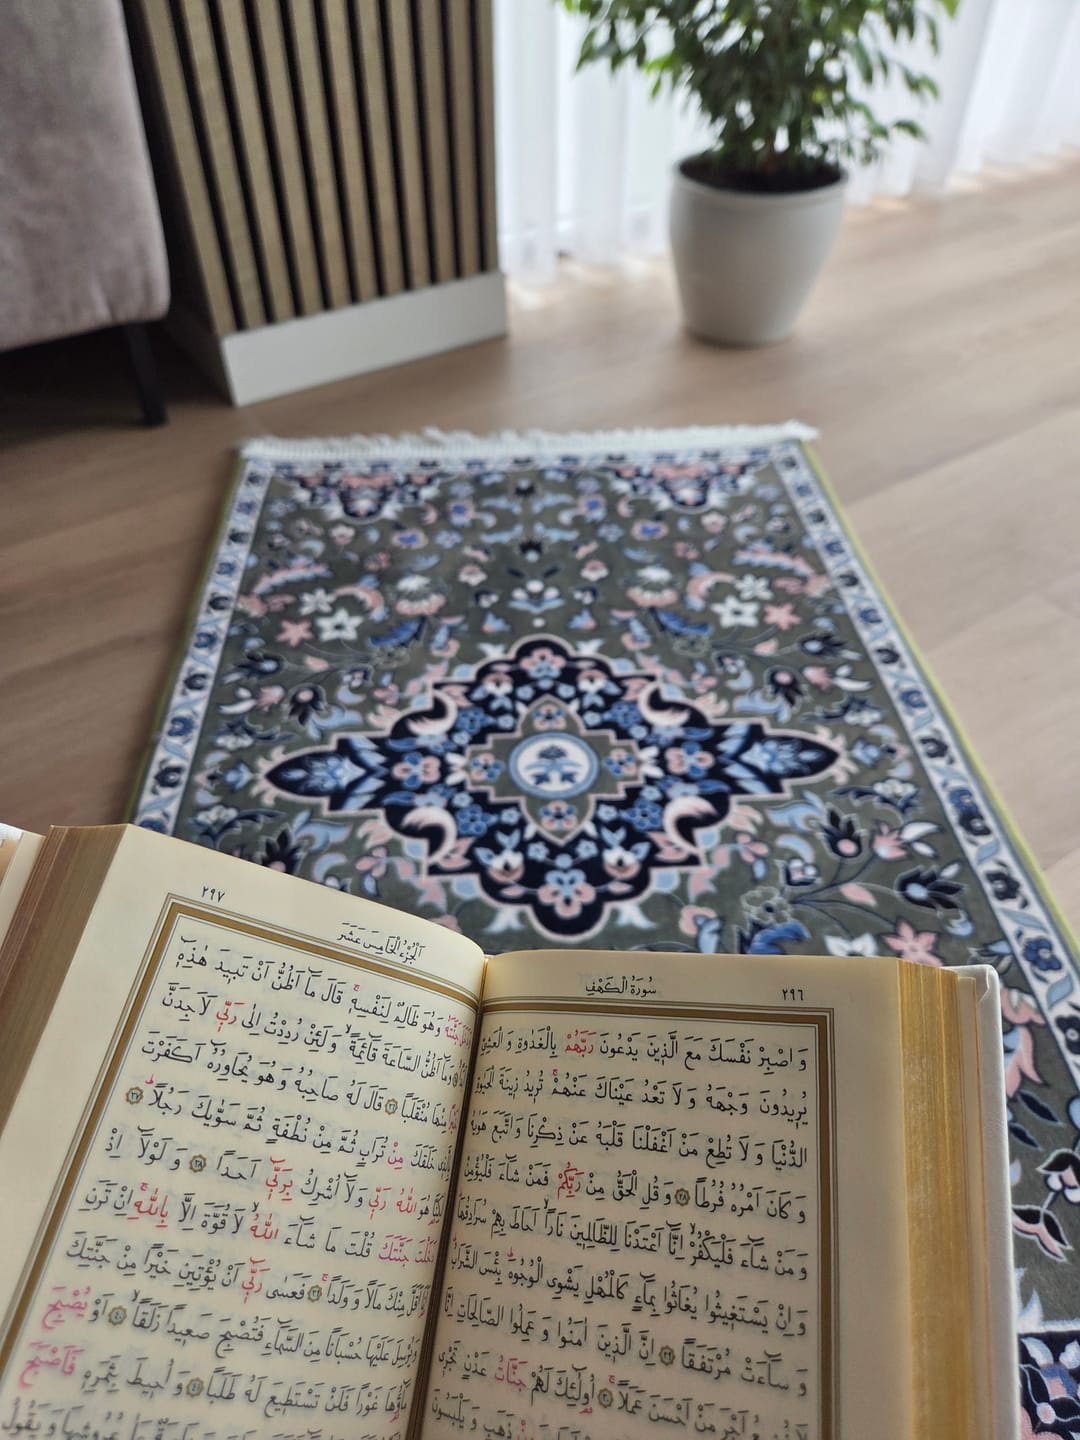 سُورَةُ الْكَهْفِ
٢٩٦
وَ اصْبِرْ نَفْسَكَ مَعَ الَّذِينَ يَدْعُونَ رَبَّهُمْ بِالْغَدٰوةِ وَ الْعَشِيِّ
يُرِيدُونَ وَجْهَهُ وَ لَا تَعْدُ عَيْنَاكَ عَنْهُمْ تُرِيدُ زِينَةَ الْحَيٰوةِ
الدُّنْيَا وَ لَا تُطِعْ مَنْ اَغْفَلْنَا قَلْبَهُ عَنْ ذِكْرِنَا وَ اتَّبَعَ هَوٰيهُ
وَ كَانَ اَمْرُهُ فُرُطًا ﴿٢٨﴾ وَ قُلِ الْحَقُّ مِنْ رَبِّكُمْ فَمَنْ شَٓاءَ فَلْيُؤْمِنْ
وَ مَنْ شَٓاءَ فَلْيَكْفُرْ اِنَّٓا اَعْتَدْنَا لِلظَّالِمِينَ نَارًا اَحَاطَ بِهِمْ سُرَادِقُهَا
وَ اِنْ يَسْتَغِيثُوا يُغَاثُوا بِمَٓاءٍ كَالْمُهْلِ يَشْوِى الْوُجُوهَ بِئْسَ الشَّرَابُ
وَ سَٓاءَتْ مُرْتَفَقًا ﴿٢٩﴾ اِنَّ الَّذِينَ اٰمَنُوا وَ عَمِلُوا الصَّالِحَاتِ اِنَّا
اَجْرَ مَنْ اَحْسَنَ عَمَلًا ﴿٣٠﴾ اُولٰٓئِكَ لَهُمْ جَنَّاتُ عَدْنٍ تَجْرِى
ذَهَبٍ وَ يَلْبَسُونَ
اَلْجُزْءُ الْخَامِسَ عَشَرَ
٢٩٧
جَنَّتَهُ وَ هُوَ ظَالِمٌ لِنَفْسِهِ قَالَ مَٓا اَظُنُّ اَنْ تَبِيدَ هٰذِهِٓ
وَ مَٓا اَظُنُّ السَّاعَةَ قَٓائِمَةً وَ لَئِنْ رُدِدْتُ اِلٰى رَبِّى لَاَجِدَنَّ
مِنْهَا مُنْقَلَبًا ﴿٣٦﴾ قَالَ لَهُ صَاحِبُهُ وَ هُوَ يُحَاوِرُهُٓ اَكَفَرْتَ
خَلَقَكَ مِنْ تُرَابٍ ثُمَّ مِنْ نُطْفَةٍ ثُمَّ سَوّٰيكَ رَجُلًا ﴿٣٧﴾
هُوَ اللّٰهُ رَبِّى وَ لَٓا اُشْرِكُ بِرَبِّٓى اَحَدًا ﴿٣٨﴾ وَ لَوْلَٓا اِذْ
دَخَلْتَ جَنَّتَكَ قُلْتَ مَا شَٓاءَ اللّٰهُ لَا قُوَّةَ اِلَّا بِاللّٰهِ اِنْ تَرَنِ
اَقَلَّ مِنْكَ مَالًا وَ وَلَدًا ﴿٣٩﴾ فَعَسٰى رَبِّٓى اَنْ يُؤْتِيَنِ خَيْرًا مِنْ جَنَّتِكَ
وَ يُرْسِلَ عَلَيْهَا حُسْبَانًا مِنَ السَّمَٓاءِ فَتُصْبِحَ صَعِيدًا زَلَقًا ﴿٤٠﴾ اَوْ يُصْبِحَ
مَٓاؤُهَا غَوْرًا فَلَنْ تَسْتَطِيعَ لَهُ طَلَبًا ﴿٤١﴾ وَ اُحِيطَ بِثَمَرِهِ فَاَصْبَحَ
عُرُوشِهَا وَ يَقُولُ